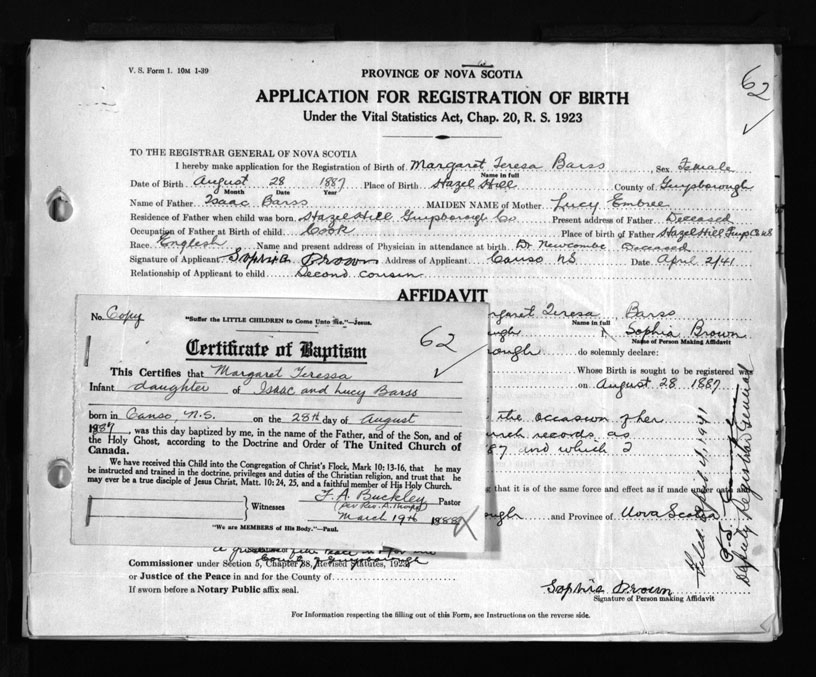 V. S. Form 1. 10M 1-39
62
PROVINCE OF NOVA SCOTIA
APPLICATION FOR REGISTRATION OF BIRTH
Under the Vital Statistics Act, Chap. 20, R. S. 1923
TO THE REGISTRAR GENERAL OF NOVA SCOTIA
I hereby make application for the Registration of Birth of Margaret Teresa Barss Sex Female
Name in full
Date of Birth August 28 1887 Place of Birth Hazel Hill County of Guysborough
Month Date Year
Name of Father Isaac Barss MAIDEN NAME of Mother Lucy Embree
Residence of Father when child was born Hazel Hill Guysborough Co. Present address of Father Deceased
Occupation of Father at Birth of child Cook Place of birth of Father Hazel Hill Guys Co NS
Race English Name and present address of Physician in attendance at birth Dr Newcombe Deceased
Signature of Applicant Sophia Brown Address of Applicant Canso NS Date April 2/41
Relationship of Applicant to child Second cousin
AFFIDAVIT
garet Teresa Barss
Name in full
ugh Sophia Brown
Name of Person Making Affidavit
rough do solemnly declare:
Whose Birth is sought to be registered was
on August 28 1887
the occasion of her
urch records as
87 and which I
g that it is of the same force and effect as if made under oath and
ough and Province of Nova Scotia
No. Copy
"Suffer the LITTLE CHILDREN to Come Unto Me."—Jesus.
62
Certificate of Baptism
This Certifies that Margaret Teressa
Infant daughter of Isaac and Lucy Barss
born in Canso N.S. on the 28th day of August
1887, was this day baptized by me, in the name of the Father, and of the Son, and of
the Holy Ghost, according to the Doctrine and Order of The United Church of
Canada.
We have received this Child into the Congregation of Christ's Flock, Mark 10:13-16, that he may
be instructed and trained in the doctrine, privileges and duties of the Christian religion, and trust that he
may ever be a true disciple of Jesus Christ, Matt. 10:24, 25, and a faithful member of His Holy Church.
F. A. Buckley Pastor
Witnesses
March 19th 1888
"We are MEMBERS of His Body."—Paul.
Commissioner under Section 5, Chapter 38, Revised Statutes, 1923
or Justice of the Peace in and for the County of
If sworn before a Notary Public affix seal.
Sophia Brown
Signature of Person making Affidavit
For Information respecting the filling out of this Form, see Instructions on the reverse side.
Filed April 4, 1941
Deputy Registrar General